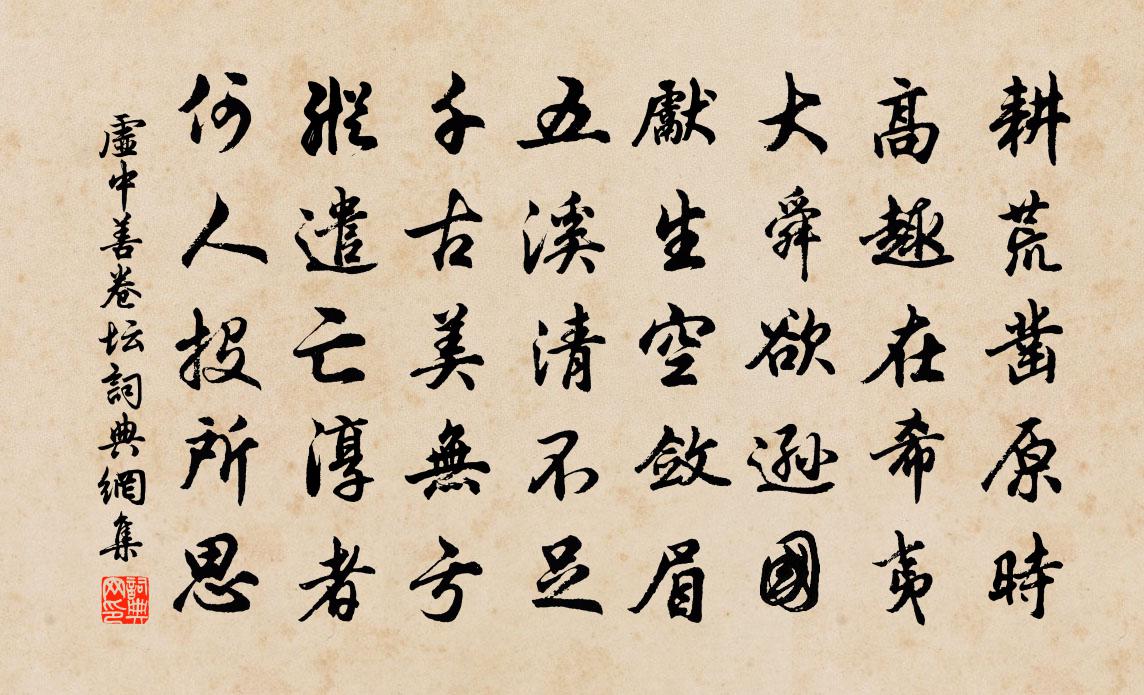 耕荒鑿原時
高趣在希夷
大舜欲遜國
獻生空斂眉
五溪清不足
千古美無亏
縱遣亡淳者
何人投所思
虛中善卷坛詞典網集
詞典网印